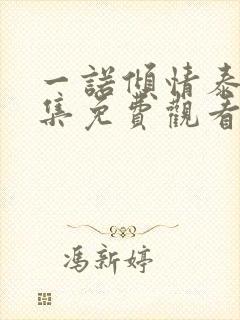 一諾傾情泰
集免費觀看
馮新婷